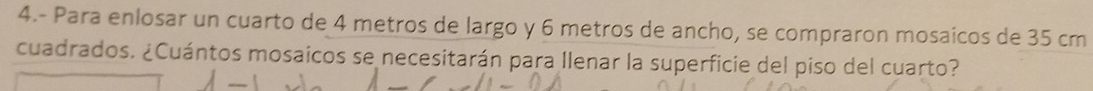 4.- Para enlosar un cuarto de 4 metros de largo y 6 metros de ancho, se compraron mosaicos de 35 cm
cuadrados. ¿Cuántos mosaicos se necesitarán para llenar la superficie del piso del cuarto?